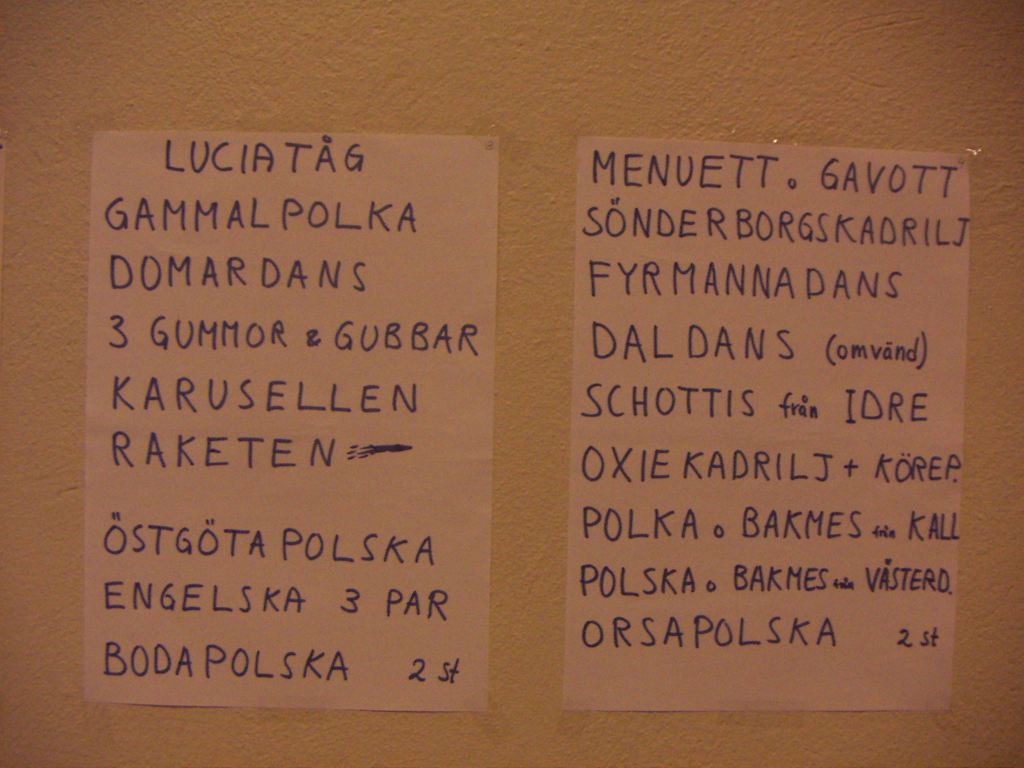 LUCIATÅG
GAMMALPOLKA
DOMARDANS
3 GUMMOR & GUBBAR
KARUSELLEN
RAKETEN
ÖSTGÖTAPOLSKA
ENGELSKA 3 PAR
BODAPOLSKA 2 st
MENUETT o GAVOTT
SÖNDERBORGSKADRILJ
FYRMANNADANS
DALDANS (omvänd)
SCHOTTIS från IDRE
OXIEKADRILJ + KÖREP.
POLKA o BAKMES från KALL
POLSKA o BAKMES från VÄSTERD.
ORSAPOLSKA 2 st